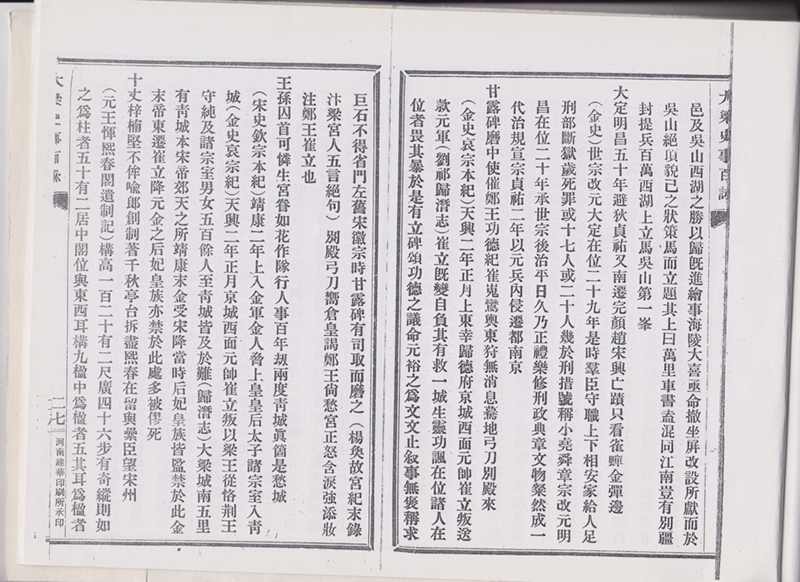 大梁史事百詠
邑及吳山西湖之勝以歸旣進繪事海陵大喜亟命撤坐屏改設所獻而於
吳山絕頂貌己之狀策馬而立題其上曰萬里車書盍混同江南豈有別疆
封提兵百萬西湖上立馬吳山第一峯
大定明昌五十年避狄貞祐又南遷完顏趙宋興亡蹟只看雀蟀金彈邊
(金史)世宗改元大定在位二十九年是時羣臣守職上下相安家給人足
刑部斷獄歲死罪或十七人或二十人幾於刑措號稱小堯舜章宗改元明
昌在位二十年承世宗後治平日久乃正禮樂修刑政典章文物粲然成一
代治規宣宗貞祐二年以元兵內侵遷都南京
甘露碑磨中使催鄭王功德紀崔嵬鸞輿東狩無消息驀地弓刀別殿來
(金史哀宗本紀)天興二年正月上東幸歸德府京城西面元帥崔立叛送
款元軍(劉祁歸潛志)崔立旣變自負其有救一城生靈功諷在位諸人在
位者畏其暴於是有立碑頌功德之議命元裕之爲文文止叙事無褒稱求
巨石不得省門左舊宋徽宗時甘露碑有司取而磨之(楊奐故宮紀末錄
汴梁宮人五言絕句)別殿弓刀嚮倉皇謁鄭王尙愁宮正怒含淚強添妝
注鄭王崔立也
王孫囚首可憐生宮眷如花作隊行人事百年刼兩度靑城眞箇是愁城
(宋史欽宗本紀)靖康二年上入金軍金人脅上皇皇后太子諸宗室入靑
城(金史哀宗紀)天興二年正月京城西面元帥崔立叛以梁王從恪荆王
守純及諸宗室男女五百餘人至靑城皆及於難(歸潛志)大梁城南五里
有靑城本宋帝郊天之所靖康末金受宋降當時后妃皇族皆監禁於此金
末帝東遷崔立降元金之后妃皇族亦禁於此處多被僇死
十丈梓楠堅不侔喩郎創制著千秋亭台拆盡熙春在留與纍臣望宋州
(元王惲熙春閣遺制記)構高一百二十有二尺廣四十六步有奇縱則如
之爲柱者五十有二居中閣位與東西耳構九楹中爲楹者五其耳爲楹者
二七
河南維華印刷所承印